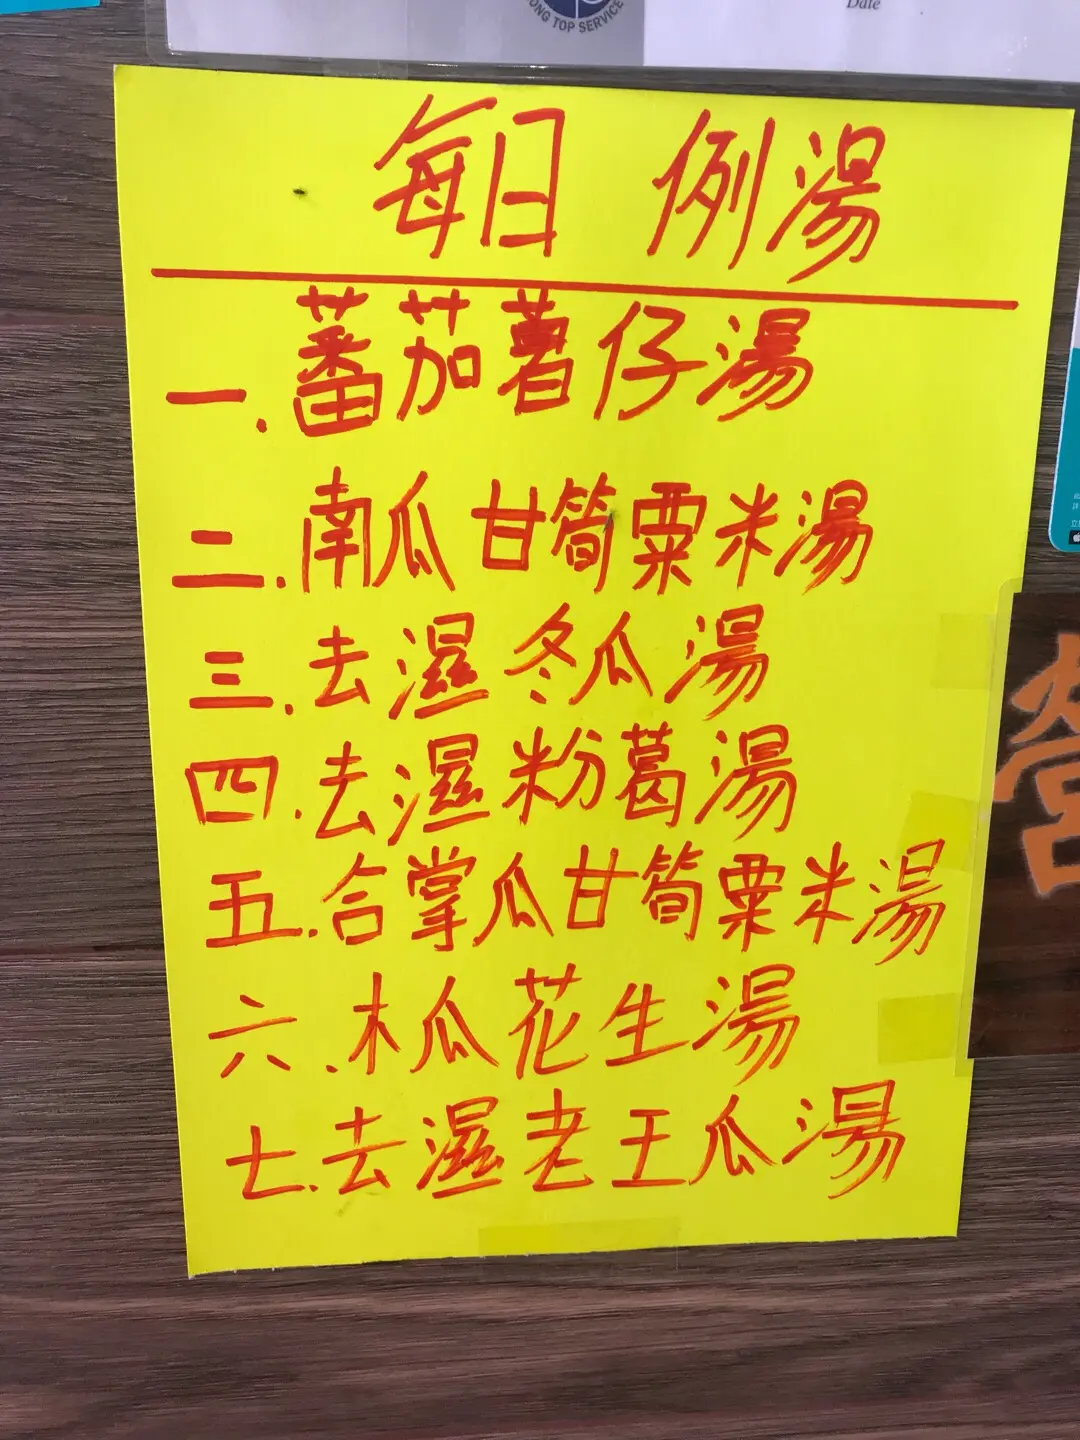 ONG TOP SERVICE
Date
每日 例湯
一.蕃茄薯仔湯
二.南瓜甘筍粟米湯
三.去濕冬瓜湯
四.去濕粉葛湯
五.合掌瓜甘筍粟米湯
六.木瓜花生湯
七.去濕老王瓜湯
營